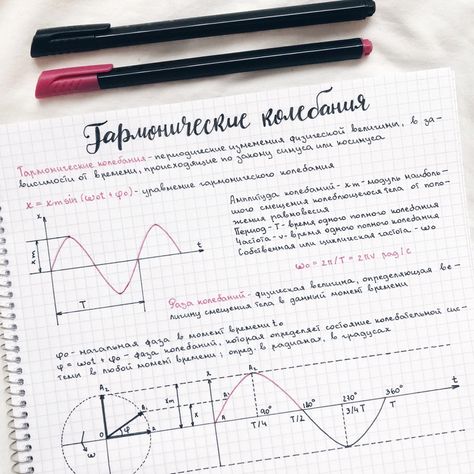 Гармонические колебания
Гармонические колебания - периодические изменения физической величины, в за-
висимости от времени, происходящие по закону синуса или косинуса
x = xm sin (ω₀t + φ₀) - уравнение гармонического колебания
Амплитуда колебаний - xm - модуль наиболь-
шого смещения колеблющегося тела от поло-
жения равновесия
Период - T - время одного полного колебания
Частота - ν - время одного полного колебания
Собственная или циклическая частота - ω₀
ω₀ = 2π/T = 2πν рад/с
x
xm
t
T
Фаза колебаний - физическая величина, определяющая ве-
личину смещения тела в данный момент времени
φ₀ - начальная фаза в момент времени t₀
φ = ω₀t + φ₀ - фаза колебаний, которая определяет состояние колебательной сис-
темы в любой момент времени; опред. в радианах, в градусах
A₂
A₁
O
φ
ω
xm
x
x
A
A₁
A₂
90°
T/4
180°
T/2
270°
3/4 T
360°
T
t